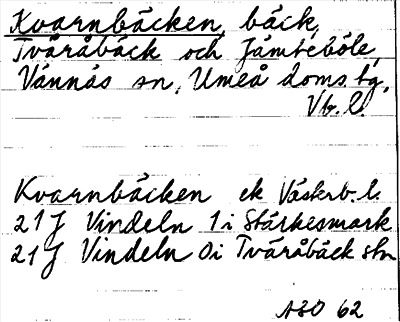 Kvarnbäcken, bäck,
Tväråbäck och Jämteböle,
Vännäs sn, Umeå doms.tg,
Vb. l.
Kvarnbäcken ek Västerb. l.
21 J Vindeln 1 i Stärkesmark
21 J Vindeln 0 i Tväråbäck stn
ASO 62